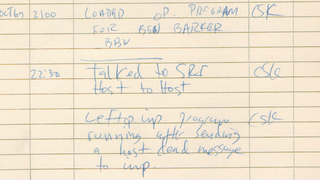 Oct 69 2100 LOADED OP. PROGRAM CSK
FOR BEN BARKER
BBN
22:30 Talked to SRI CSK
Host to Host
Left op imp program CSK
running after sending
a host dead message
to imp.